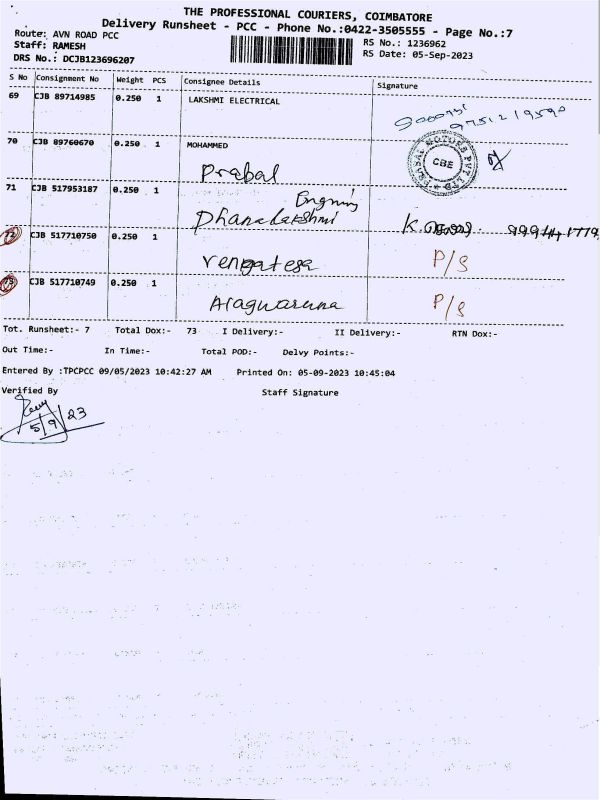 THE PROFESSIONAL COURIERS, COIMBATORE
Delivery Runsheet - PCC - Phone No.:0422-3505555 - Page No.:7
Route: AVN ROAD PCC
RS No.: 1236962
Staff: RAMESH
RS Date: 05-Sep-2023
DRS No.: DCJB123696207
S No Consignment No Weight PCS Consignee Details Signature
69 CJB 89714985 0.250 1 LAKSHMI ELECTRICAL
9751219590
70 CJB 89760670 0.250 1 MOHAMMED
Prabal
MOTORS PVT
CBE
71 CJB 517953187 0.250 1
Dhanalakshmi
72 CJB 517710750 0.250 1
Vengatesa P/S
73 CJB 517710749 0.250 1
Alaguaruna P/S
Tot. Runsheet:- 7 Total Dox:- 73 I Delivery:- II Delivery:- RTN Dox:-
Out Time:- In Time:- Total POD:- Delvy Points:-
Entered By :TPCPCC 09/05/2023 10:42:27 AM Printed On: 05-09-2023 10:45:04
Verified By Staff Signature
5/9/23